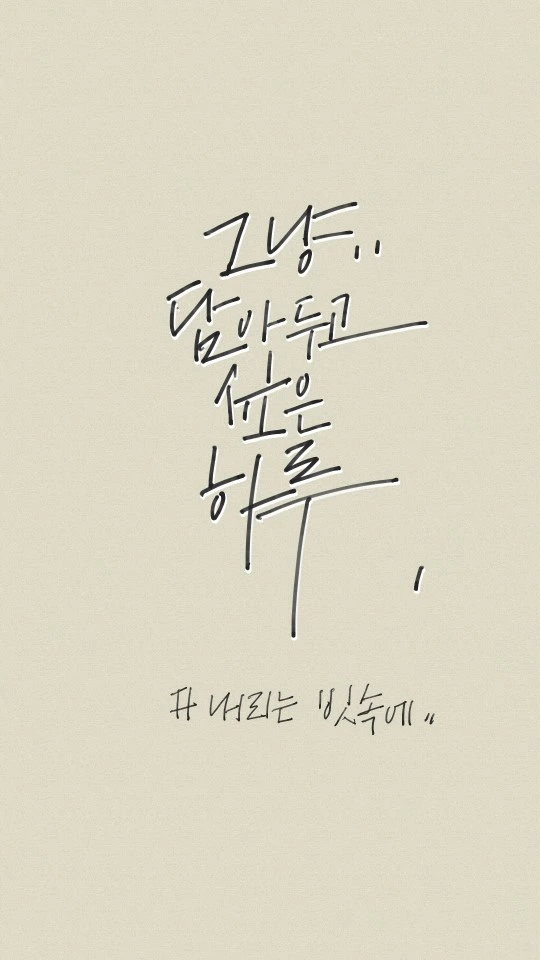 그냥..
담아두고
싶은
하루,
내리는 빗속에..